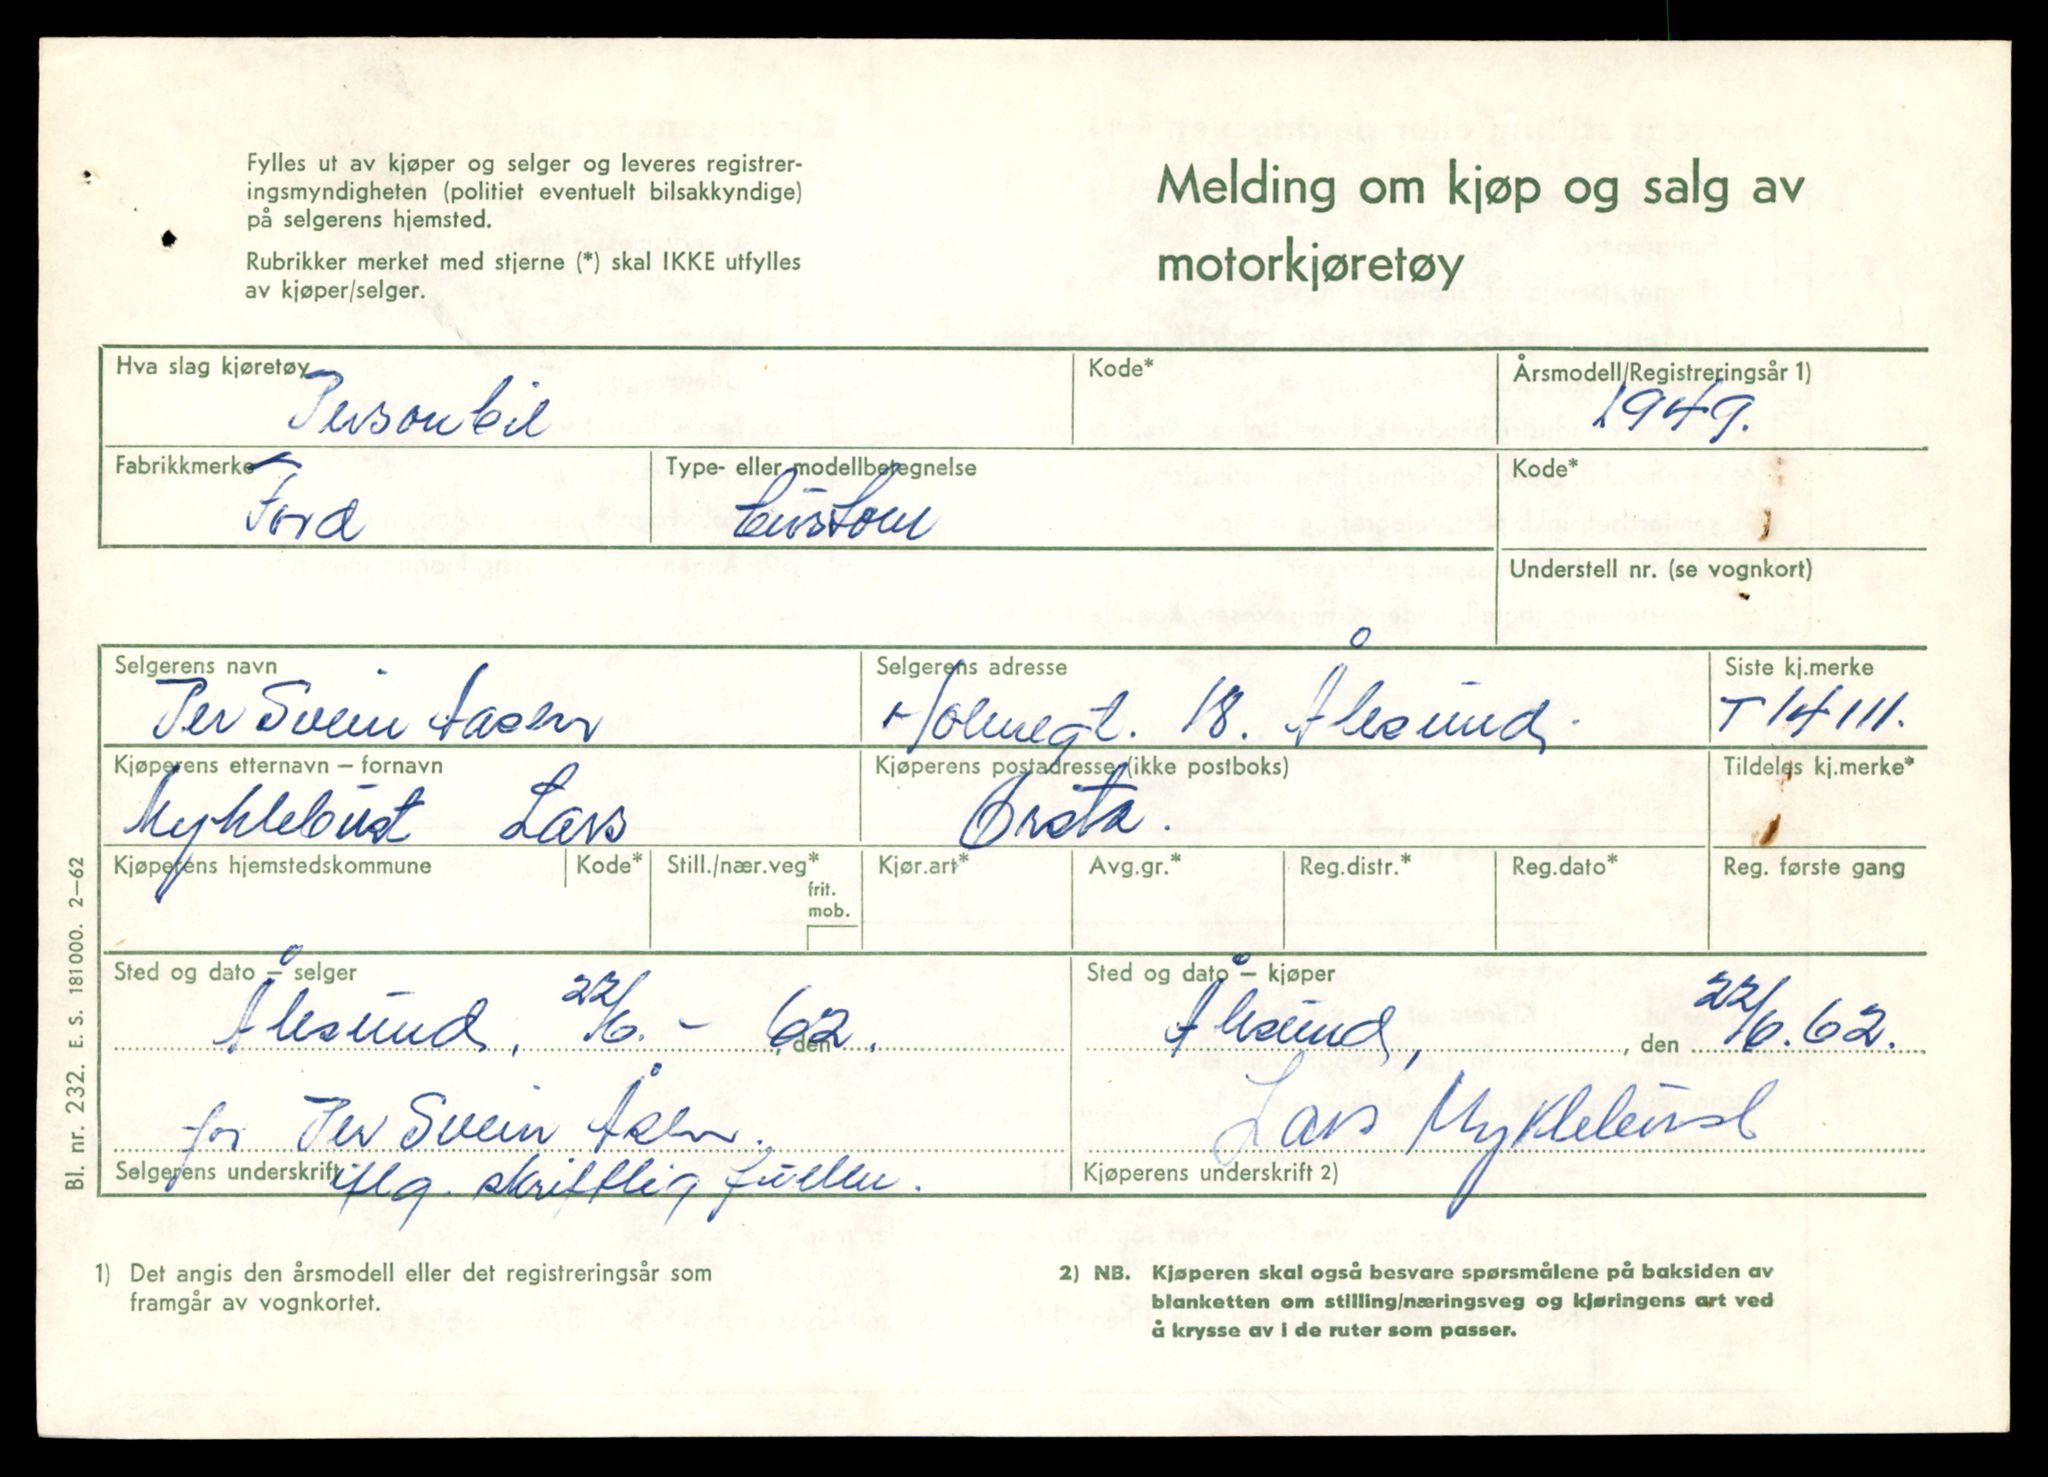 Fylles ut av kjøper og selger og leveres registrer-
ingsmyndigheten (politiet eventuelt bilsakkyndige)
på selgerens hjemsted.
Rubrikker merket med stjerne (*) skal IKKE utfylles
av kjøper/selger.
Melding om kjøp og salg av
motorkjøretøy
Hva slag kjøretøy
Personbil
Kode*
Årsmodell/Registreringsår 1)
1949.
Fabrikkmerke
Ford
Type- eller modellbetegnelse
Custom
Kode*
Understell nr. (se vognkort)
Selgerens navn
Per Svein Aasen
Selgerens adresse
Holmegt. 18. Ålesund.
Siste kj.merke
T 14111.
Kjøperens etternavn – fornavn
Myklebust Lars
Kjøperens postadresse (ikke postboks)
Ørsta.
Tildeles kj.merke*
Kjøperens hjemstedskommune
Kode*
Still./nær.veg*
frit.
mob.
Kjør.art*
Avg.gr.*
Reg.distr.*
Reg.dato*
Reg. første gang
Sted og dato – selger
Ålesund, 22/6. - 62.
, den
Sted og dato – kjøper
Ålesund, , den 22/6.62.
for Per Svein Åsen.
Selgerens underskrift
iflg. skriftlig fullm.
Lars Myklebust
Kjøperens underskrift 2)
Bl. nr. 232. E. S. 181000. 2–62
1) Det angis den årsmodell eller det registreringsår som
framgår av vognkortet.
2) NB. Kjøperen skal også besvare spørsmålene på baksiden av
blanketten om stilling/næringsveg og kjøringens art ved
å krysse av i de ruter som passer.